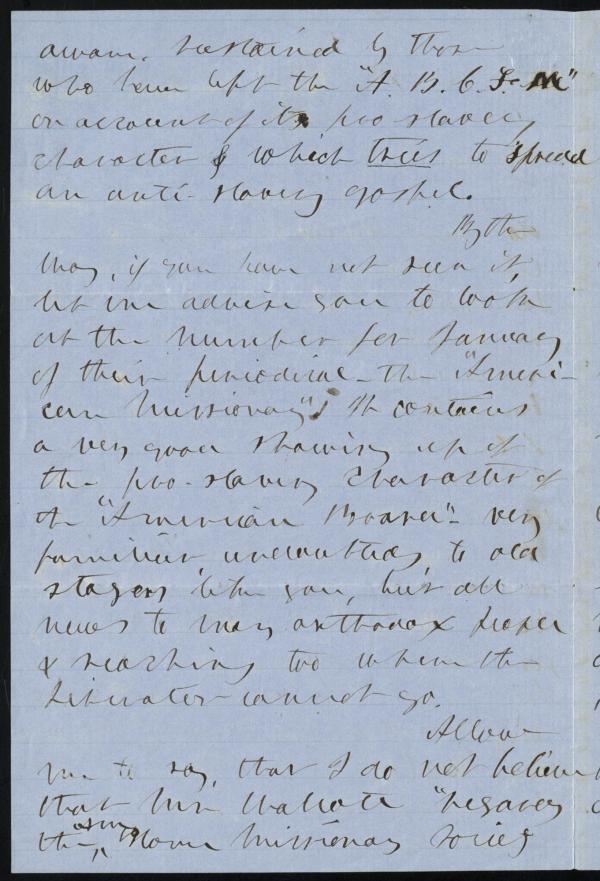 aware. sustained by those
who have left the "A. B. C. F. M"
on account of its pro-slavery
character & which tries to spread
an anti-slavery gospel.
By the
way, if you have not seen it,
let me advise you to look
at the number for January
of their periodical - the "Ameri-
can Missionary". It contains
a very good showing up of
the pro-slavery character of
the "American Board" - very
familiar undoubtedly to old
stagers like you, but all
news to many orthodox people
& reaching too where the
Liberator cannot go.
Allow
me to say, that I do not believe
that Mrs "regards
the Am Home Missionary Society